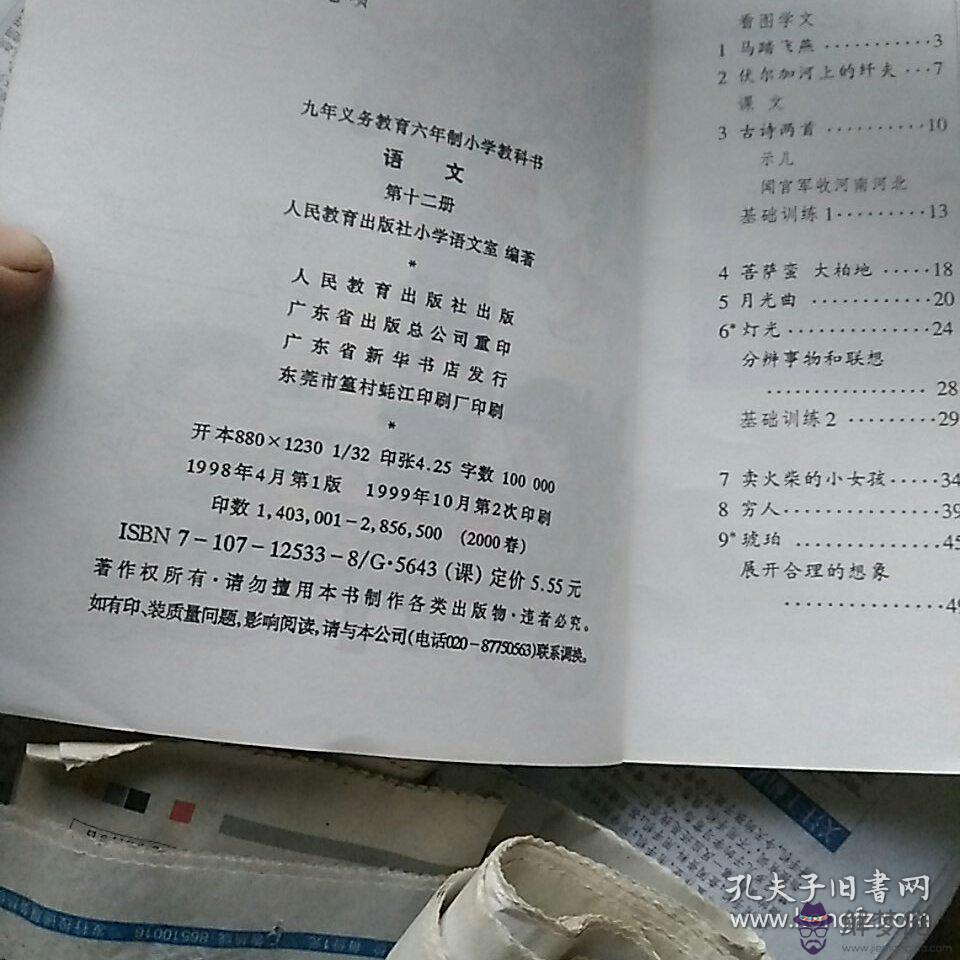 九年义务教育六年制小学教科书
语 文
第十二册
人民教育出版社小学语文室 编著
*
人民教育出版社出版
广东省出版总公司重印
广东省新华书店发行
东莞市篁村蚝江印刷厂印刷
*
开本880×1230 1/32 印张4.25 字数 100 000
1998年4月第1版 1999年10月第2次印刷
印数 1,403,001-2,856,500 (2000春)
ISBN 7-107-12533-8/G·5643 (课) 定价 5.55元
著作权所有·请勿擅用本书制作各类出版物·违者必究。
如有印、装质量问题,影响阅读,请与本公司(电话020-87750563)联系调换。
看图学文
1 马踏飞燕 ···········3
2 伏尔加河上的纤夫 ···7
课 文
3 古诗两首 ··········10
示儿
闻官军收河南河北
基础训练1·········13
4 菩萨蛮 大柏地 ·····18
5 月光曲 ············20
6* 灯光 ··············24
分辨事物和联想
·················· 28
基础训练2 ·········29
7 卖火柴的小女孩·····34
8 穷人···············39
9* 琥珀 ··············45
展开合理的想象
··················49
孔夫子旧書网